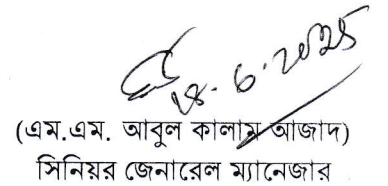 ১৪.6.2025
(এম.এম. আবুল কালাম আজাদ)
সিনিয়র জেনারেল ম্যানেজার